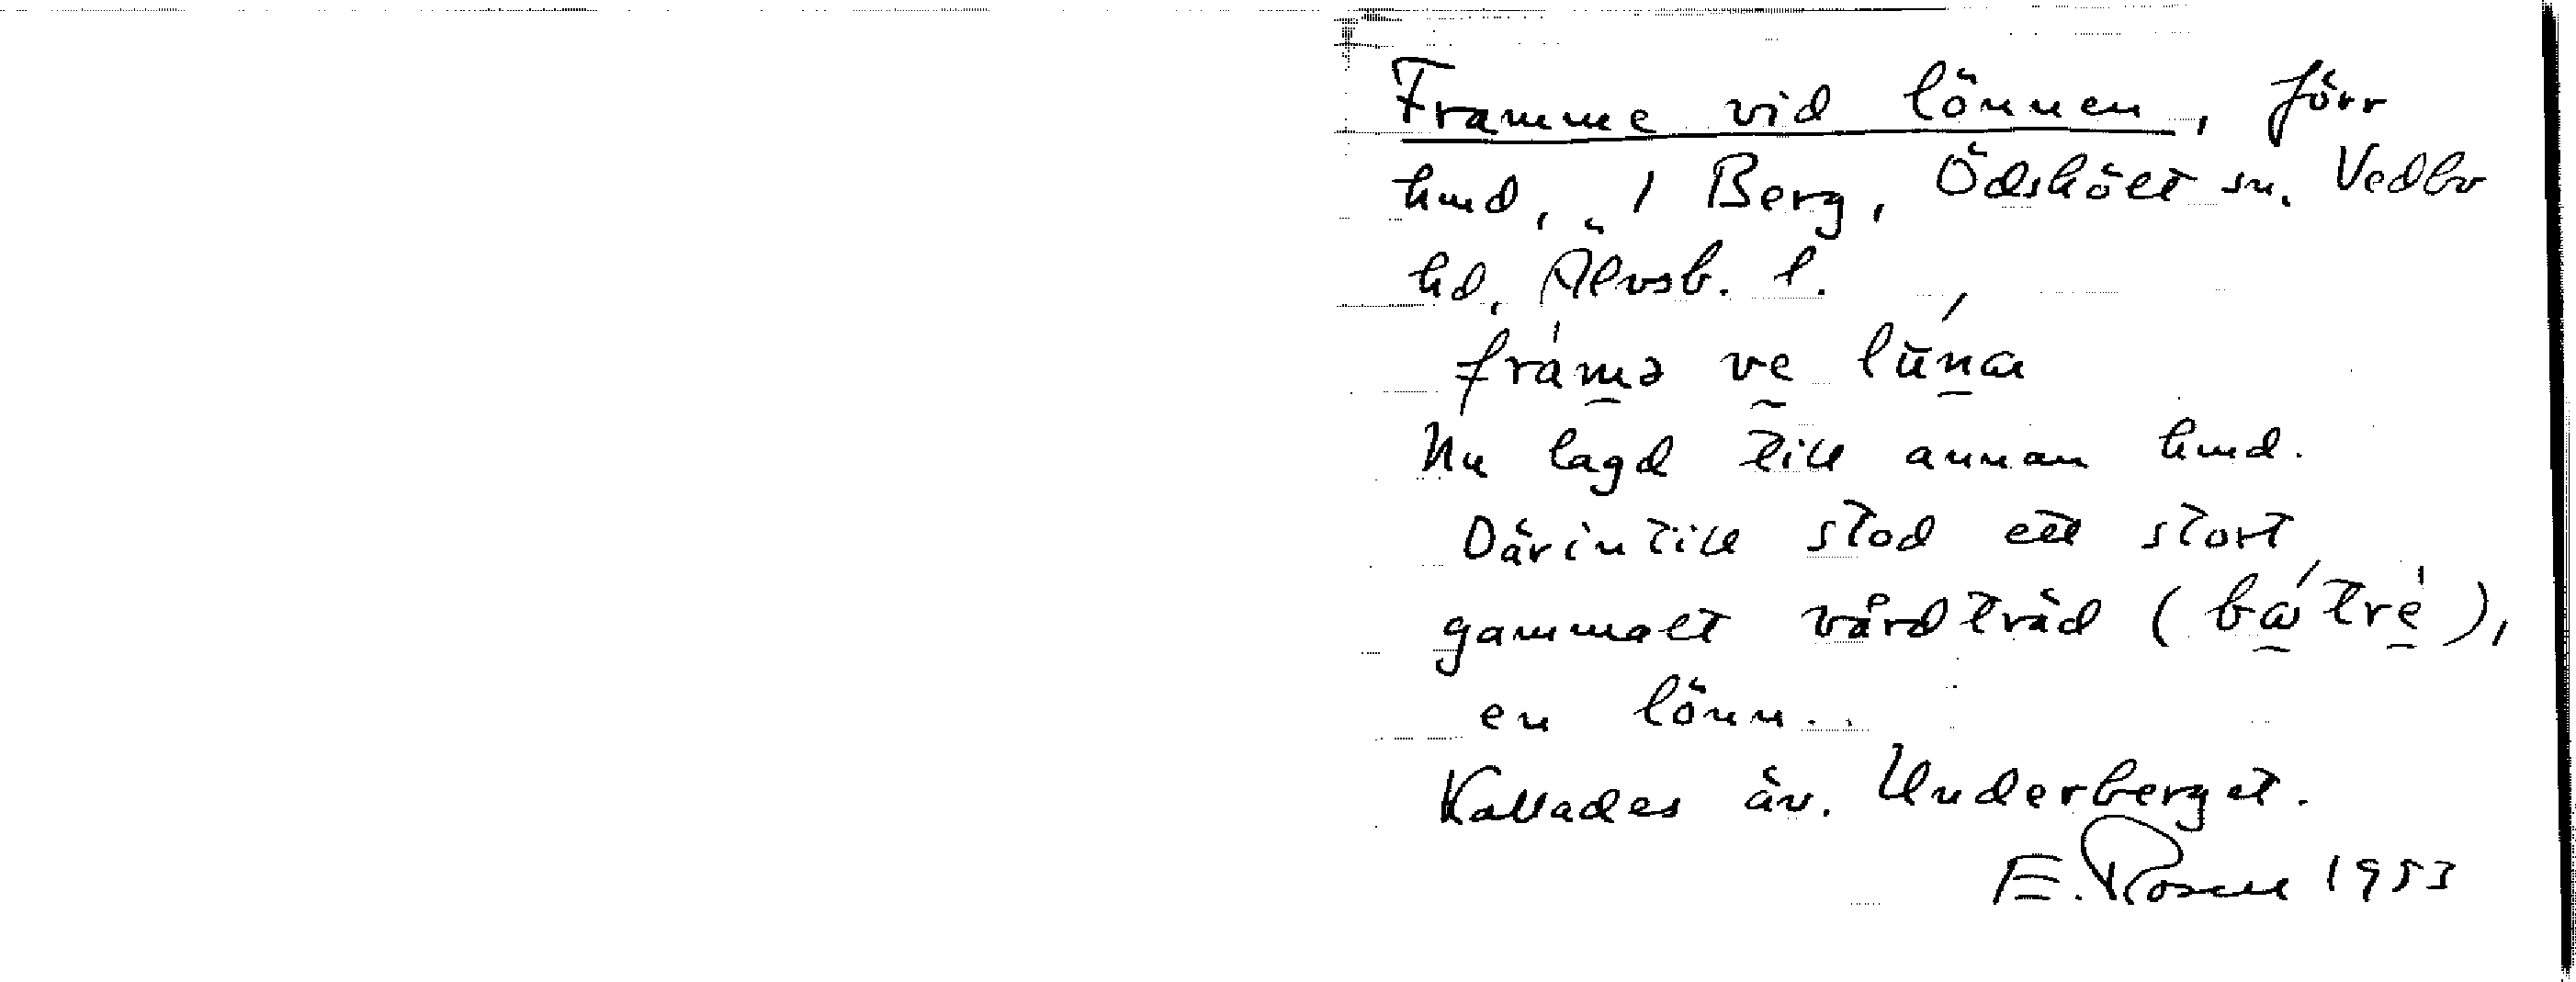 Framme vid lönnen, förr
hmd, 1 Berg, Ödskölt sn. Vedbo
hd. Älvsb. l.
Nu lagd till annan hmd.
Därintill stod ett stort
gammalt vårdträd (
en lönn.
Kallades äv. Underberget.
E. Rosell 1953